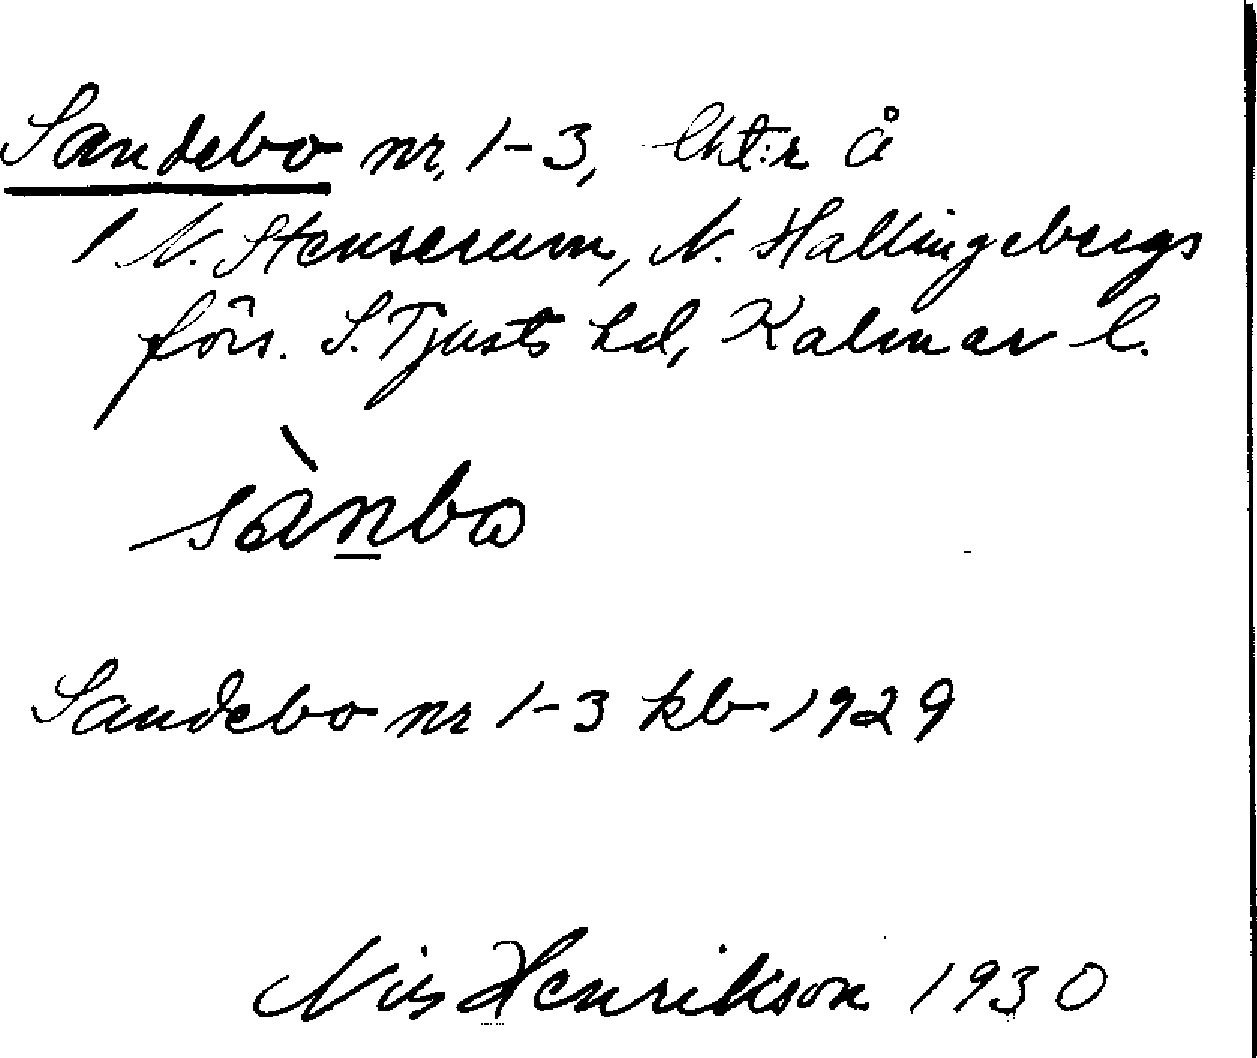 Sandebo nr. 1-3, lht:r å
N. Stenserum, N. Hallingebergs
förs. S. Tjusts hd, Kalmar l.
sànbω
Sandebo nr 1-3 kb 1929
Nils Henrikson 1930